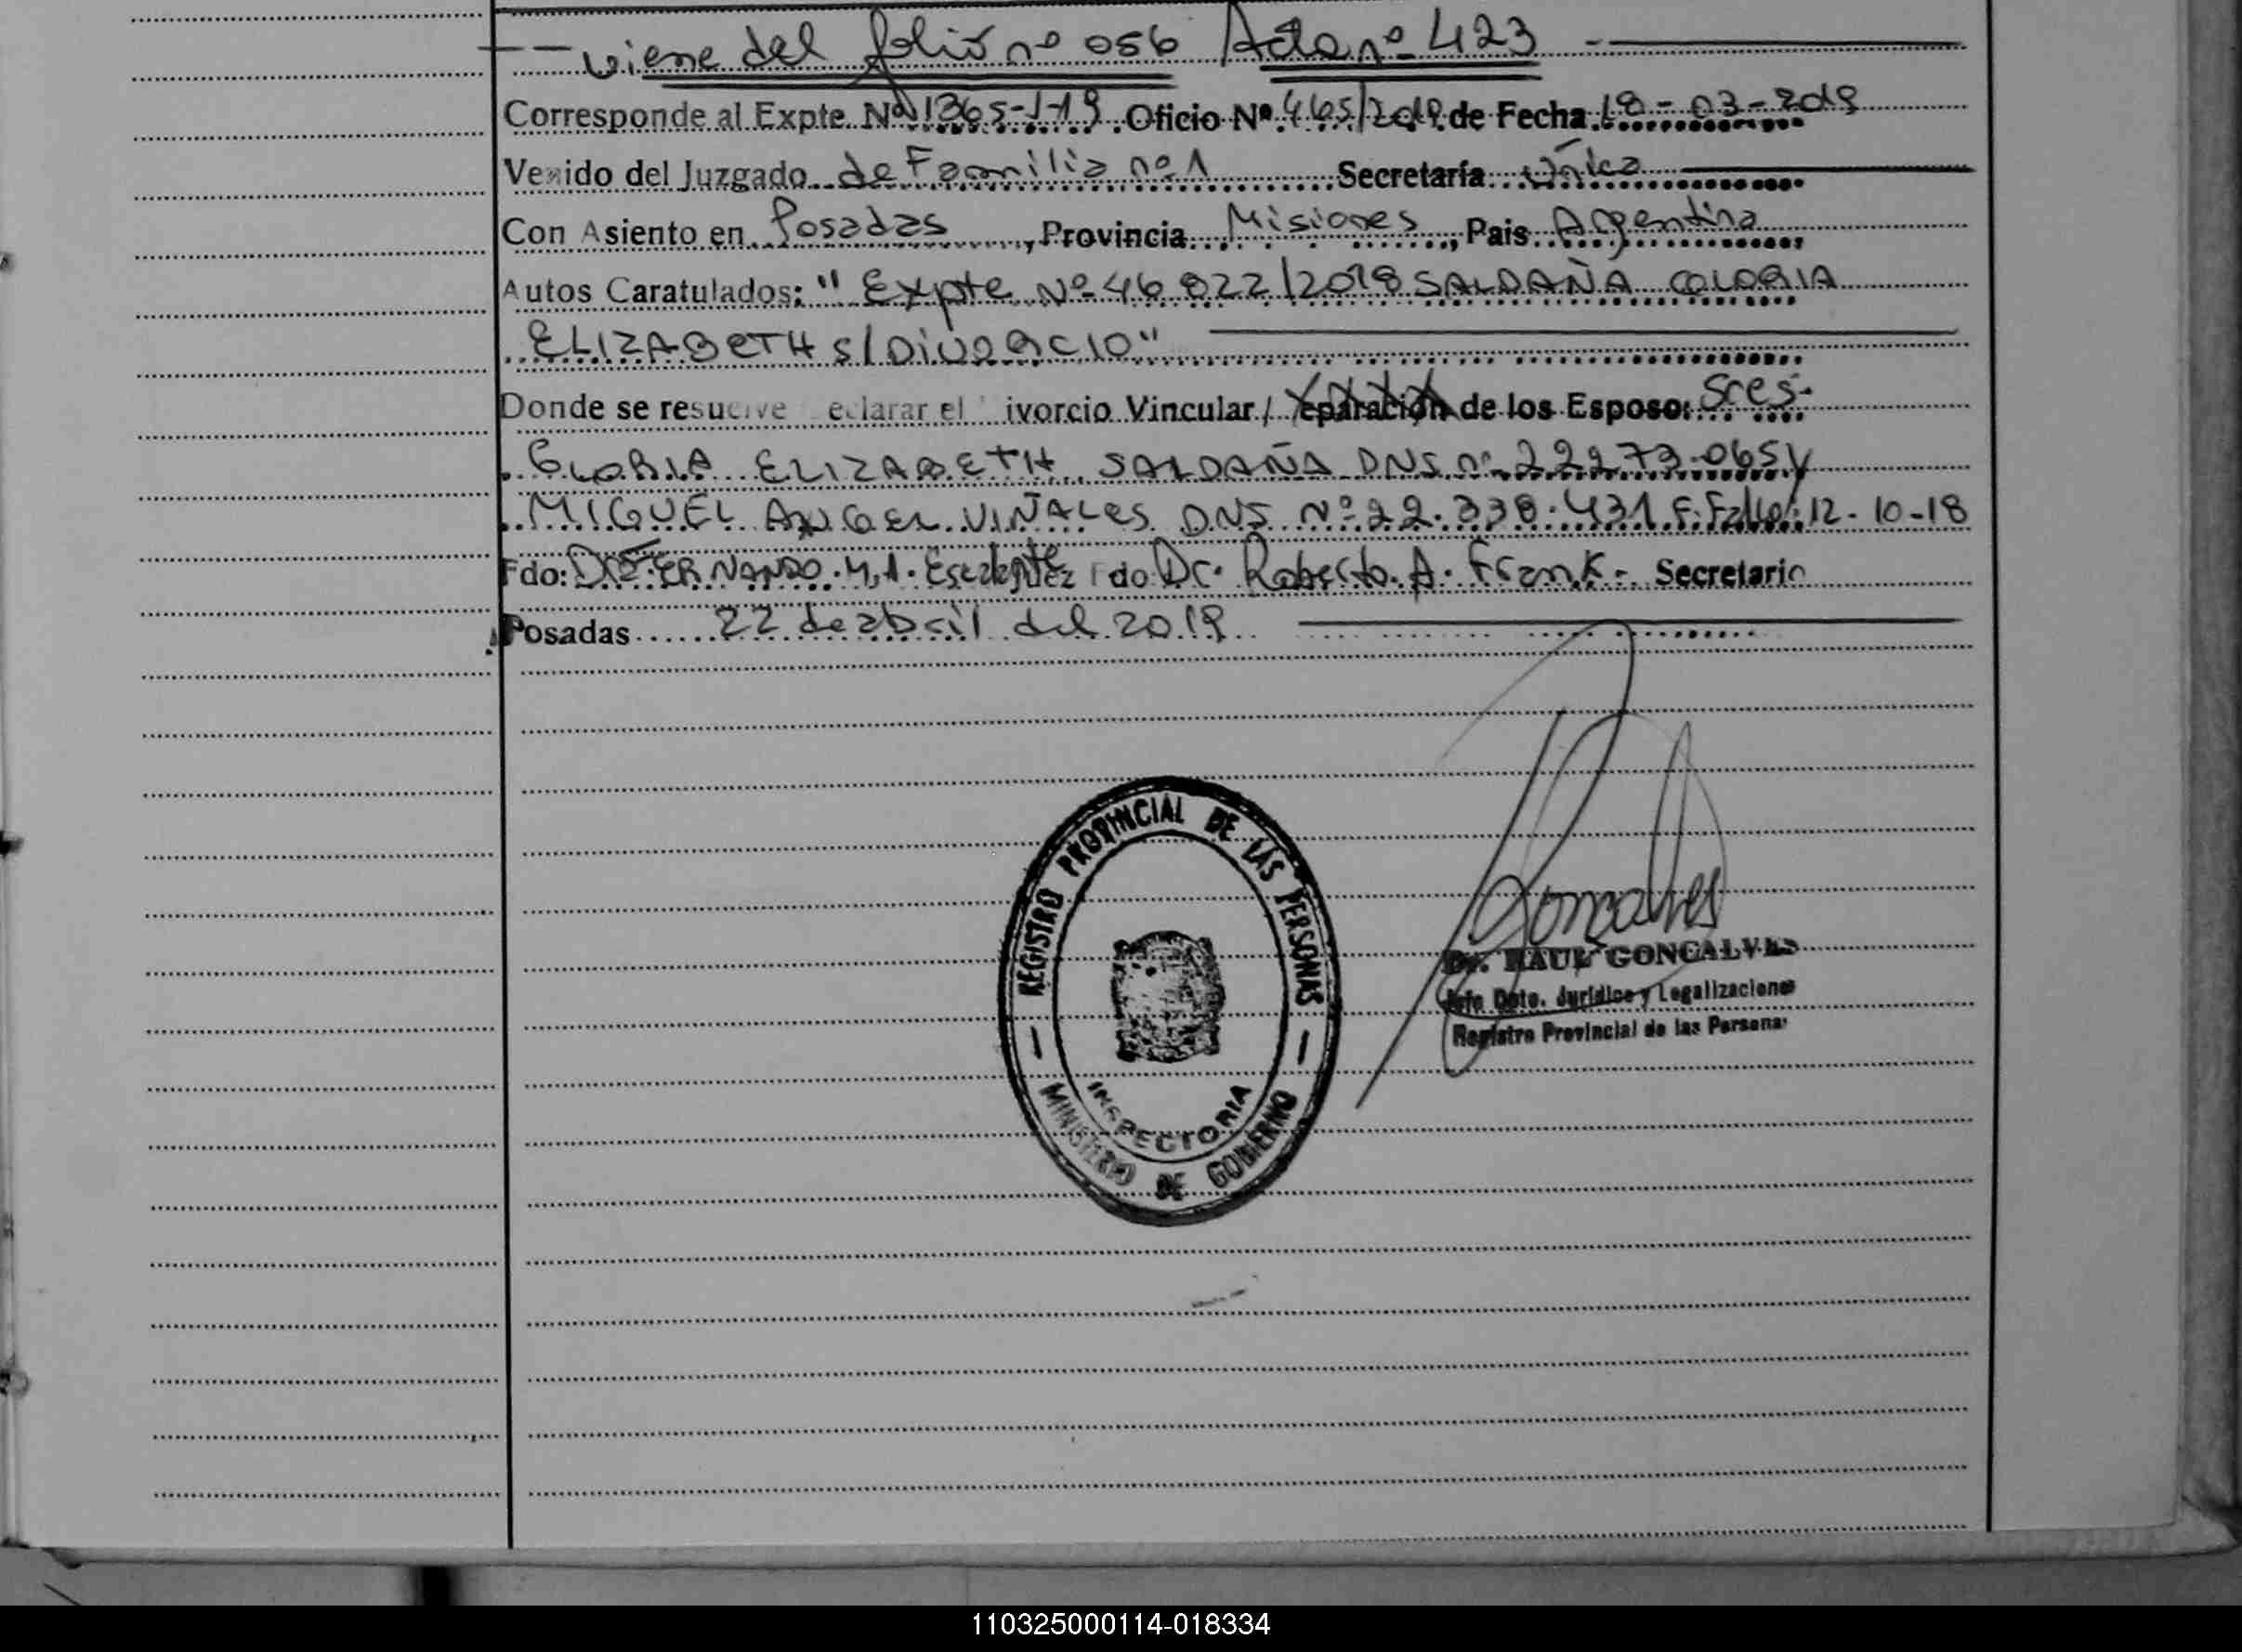 viene del folio nº 056 Acta nº 423
Corresponde al Expte. Nº 1365-J-19. Oficio Nº 465/2019 de Fecha 18-03-2019
Venido del Juzgado de Familia nº 1 Secretaría única
Con Asiento en Posadas, Provincia Misiones, Pais Argentina
Autos Caratulados: "Expte Nº 46822/2018 SALDAÑA GLORIA
ELIZABETH S/DIVORCIO"
Donde se resuelve declarar el Divorcio Vincular / Separación de los Esposo: Sres.
GLORIA ELIZABETH SALDAÑA DNI nº 22.273.065 y
MIGUEL ANGEL VIÑALES DNI Nº 22.338.431 F. Fallo: 12-10-18
Fdo: Dr. FERNANDO M.A. Escalante Juez Fdo Dr. Roberto. A. Frank - Secretario
Posadas 22 de abril del 2019
REGISTRO PROVINCIAL DE LAS PERSONAS
INSPECTORIA
MINISTERIO DE GOBIERNO
Goncalves
Dr. RAUL GONCALVES
Jefe Dpto. Jurídico y Legalizaciones
Registro Provincial de las Personas
110325000114-018334